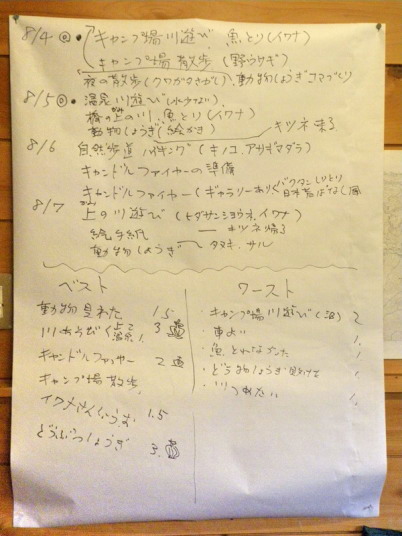 8/4 ◎ ・ キャンプ場川遊び 魚とり(イワナ)
キャンプ場散歩 (野ウサギ)
夜の散歩(クワガタさがし)、動物しょうぎコマづくり
8/5 ◎ ・ 温泉川遊び
橋の上の川 魚とり(イワナ)
動物しょうぎ(絵かき) キツネ来る
8/6 自然歩道 ハイキング (キノコ、アサギマダラ)
キャンドルファイヤーの準備
キャンドルファイヤー(ギャラリーあり
8/7 上の川遊び (ヒダサンショウウオ、イワナ)
絵手紙 キツネ帰る
動物しょうぎ タヌキ、サル
ベスト
動物見れた 1.5
川あそび 3
キャンドルファイヤー 2
キャンプ場散歩
1.5
どうぶつしょうぎ 3
ワースト
・キャンプ場川遊び(沼) 2
・車よい 1
・魚とれなかった 1
・どう物しょうぎ負けた 1
・川つめたい 1